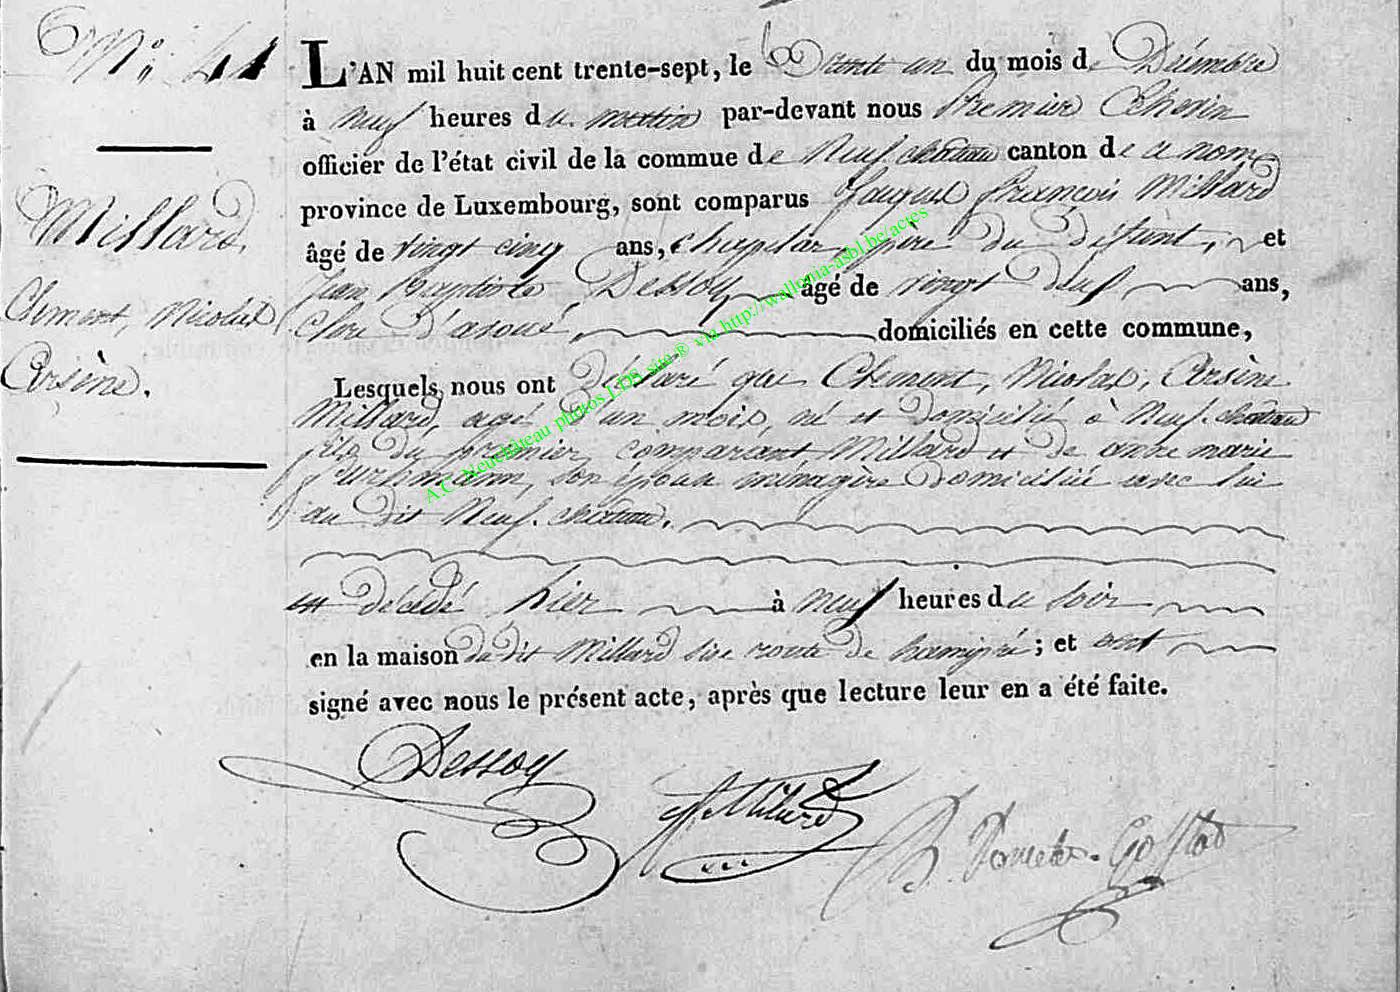 N° 41
Millard
Clement, Nicolas
Arsène.
L'AN mil huit cent trente-sept, le trente un du mois de Décembre
à neuf heures du matin par-devant nous Premier Echevin
officier de l'état civil de la commue de Neufchateau canton de ce nom
province de Luxembourg, sont comparus Jacques François Millard
âgé de vingt cinq ans, père du défunt, et
Jean Baptiste Dessoy âgé de vingt neuf ans,
Clerc d'avoué, domiciliés en cette commune,
Lesquels nous ont déclaré que Clement, Nicolas, Arsène
Millard, agé d'un mois, né et domicilié à Neuf-chateau
fils du premier comparant Millard et de anne marie
son épouse ménagère domiciliée avec lui
au dit Neuf-chateau.
est décédé hier à neuf heures du soir
en la maison du dit Millard sise route de ; et ont
signé avec nous le présent acte, après que lecture leur en a été faite.
Dessoy
Millard
A.C. Neuchâteau photos LDS site ® via http://wallonia-asbl.be/actes